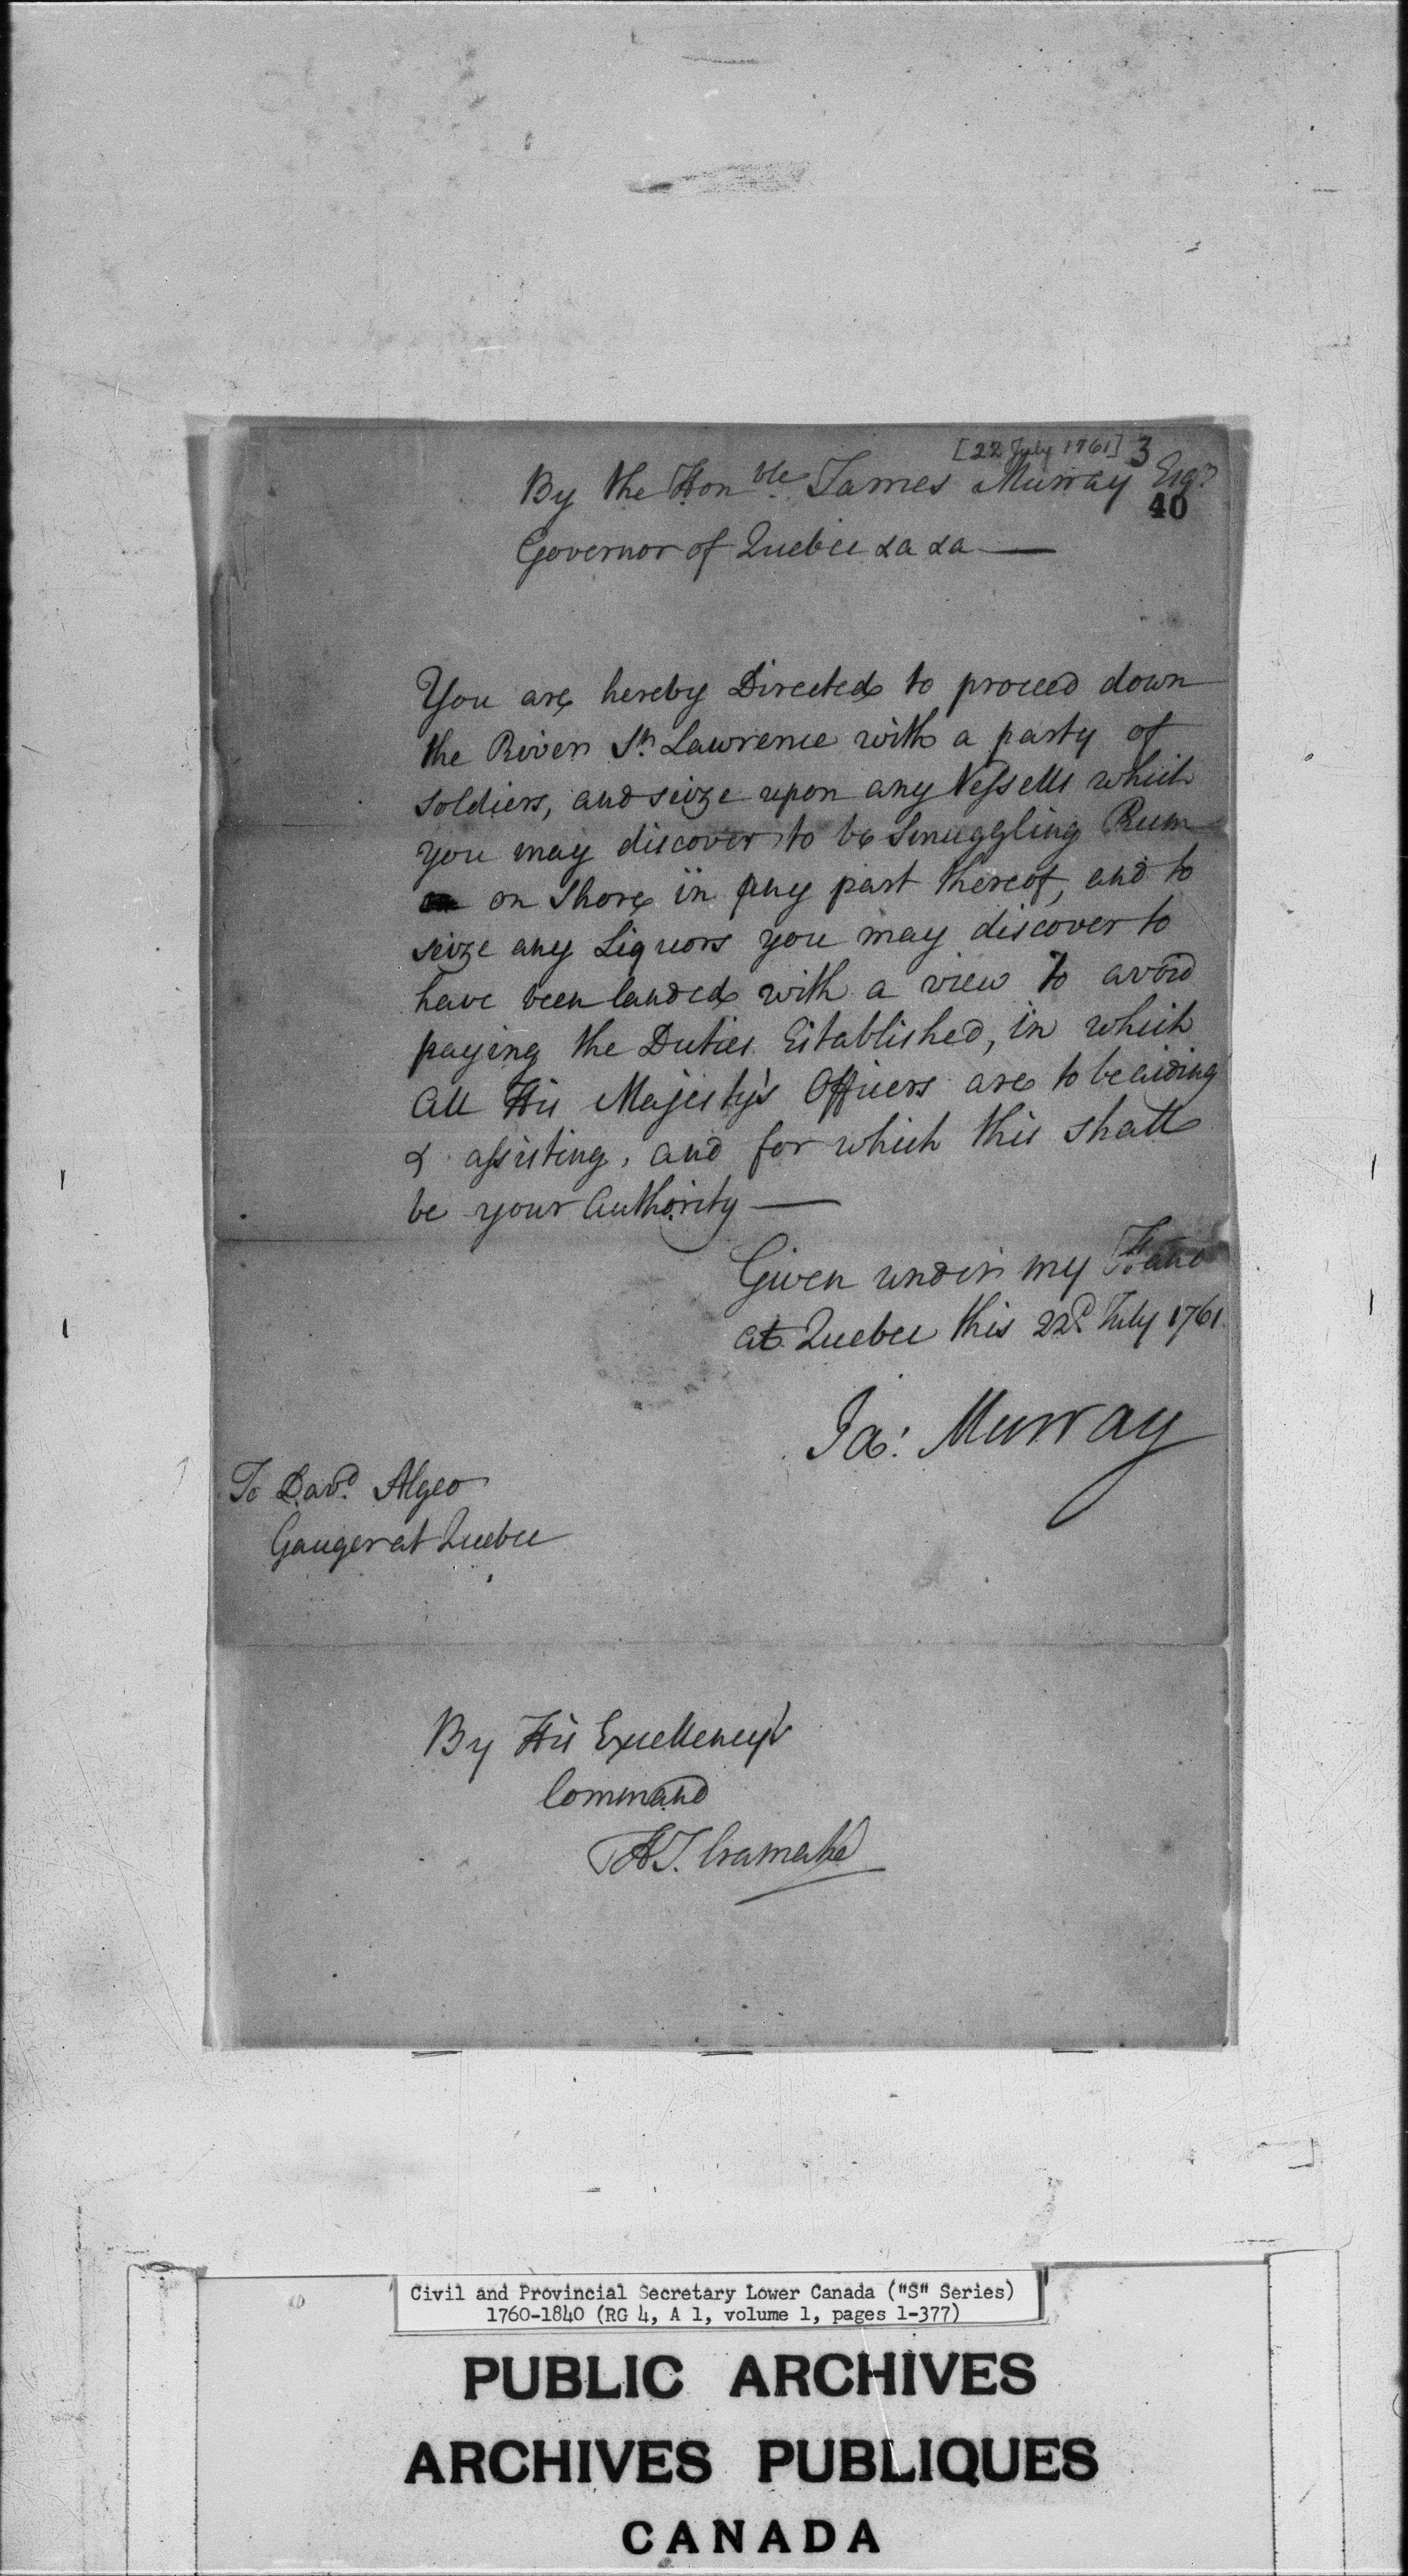 [22 July 1761] 3
By the Honble. James Murray Esqr.
40
Governor of Quebec &a &a —
You are hereby Directed to proceed down
the River St. Lawrence with a party of
soldiers, and seize upon any Vessells which
you may discover to be Smuggling Rum
on Shore in any part thereof, and to
seize any Liquors you may discover to
have been landed with a view to avoid
paying the Duties Established, in which
All His Majesty's Officers are to be aiding
& assisting, and for which this shall
be your Authority —
Given under my Hand
at Quebec this 22d. July 1761.
Ja: Murray
To Davd. Algeo
Gauger at Quebec
By His Excellency's
Command
H.T. Cramahé
Civil and Provincial Secretary Lower Canada ("S" Series)
1760-1840 (RG 4, A 1, volume 1, pages 1-377)
PUBLIC ARCHIVES
ARCHIVES PUBLIQUES
CANADA